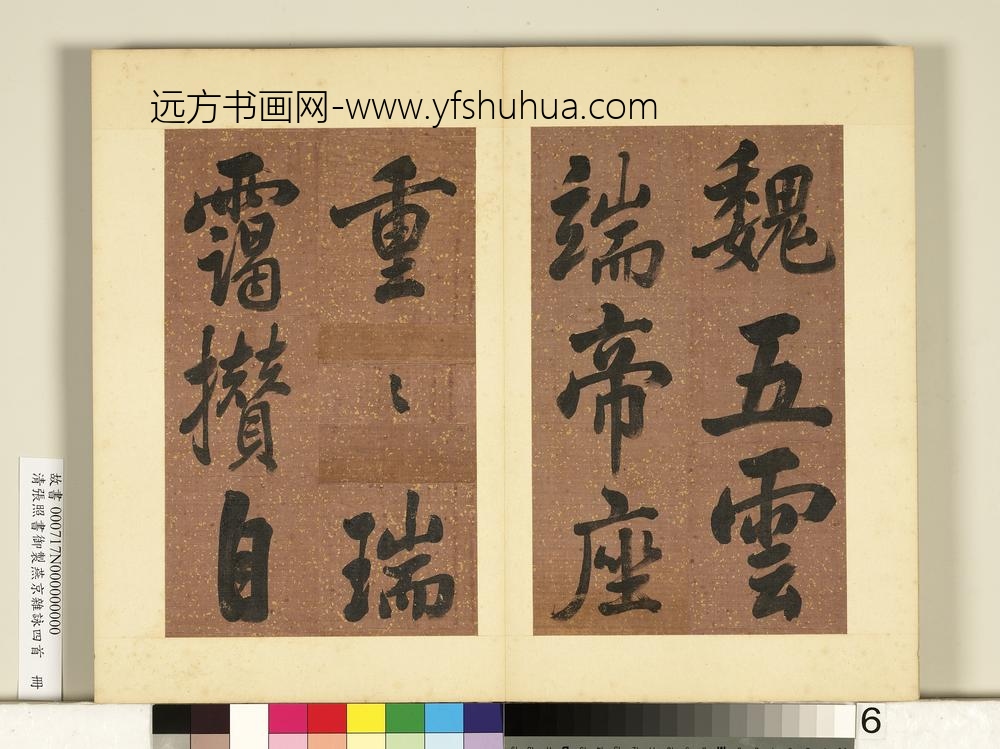 远方书画网-www.yfshuhua.com
魏五雲
端帝座
重〻瑞
靄攢自
故書 000717N000000000
清張照書御製燕京雜詠四首 冊
6